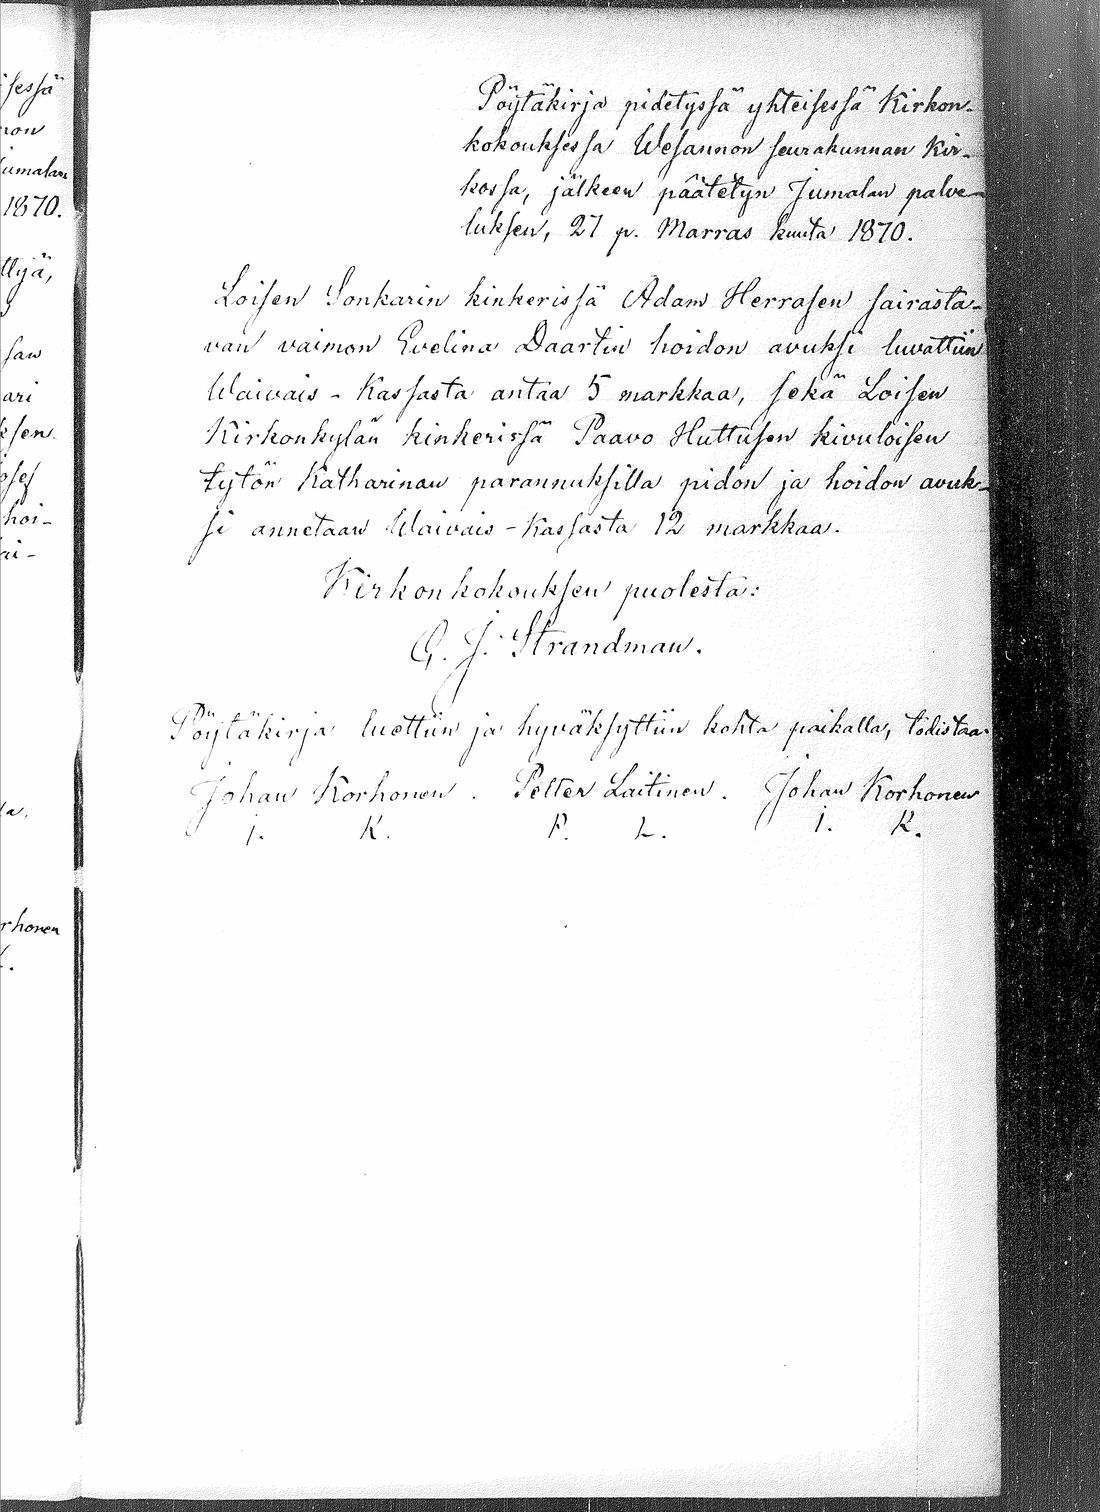 Pöytäkirja pidetyssä yhteisessä Kirkon-
kokouksessa Wesannon seurakunnan Kir-
kossa, jälkeen päätetyn Jumalan palve-
luksen, 27 p. Marras kuuta 1870.
Loisen Sonkarin kinkerissä Adam Herrasen sairasta-
van vaimon Evelina Daartin hoidon avuksi luvattiin
Waivais-Kassasta antaa 5 markkaa, sekä Loisen
Kirkonkylän kinkerissä Paavo Huttusen kivuloisen
tytön Katharinan parannuksilla pidon ja hoidon avuk-
si annetaan Waivais-Kassasta 12 markkaa.
Kirkonkokouksen puolesta:
G. J. Strandman.
Pöytäkirja luettiin ja hyväksyttiin kohta paikalla, todistaa:
Johan Korhonen. Petter Laitinen. Johan Korhonen
I. K. P. L. I. K.
sessä
non
Jumalan
1870.
ttyjä,
san
ari
ksen
osef
hoi-
ai-
la.
rhonen